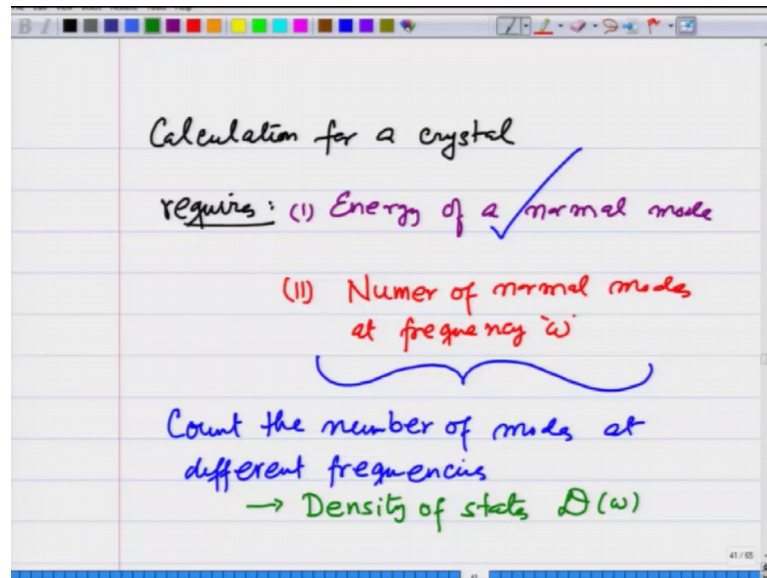 Calculation for a crystal
requires: (I) Energy of a normal mode
(II) Numer of normal modes
at frequency 'ω'
Count the number of modes at
different frequencies
→ Density of states D(ω)
41 / 65